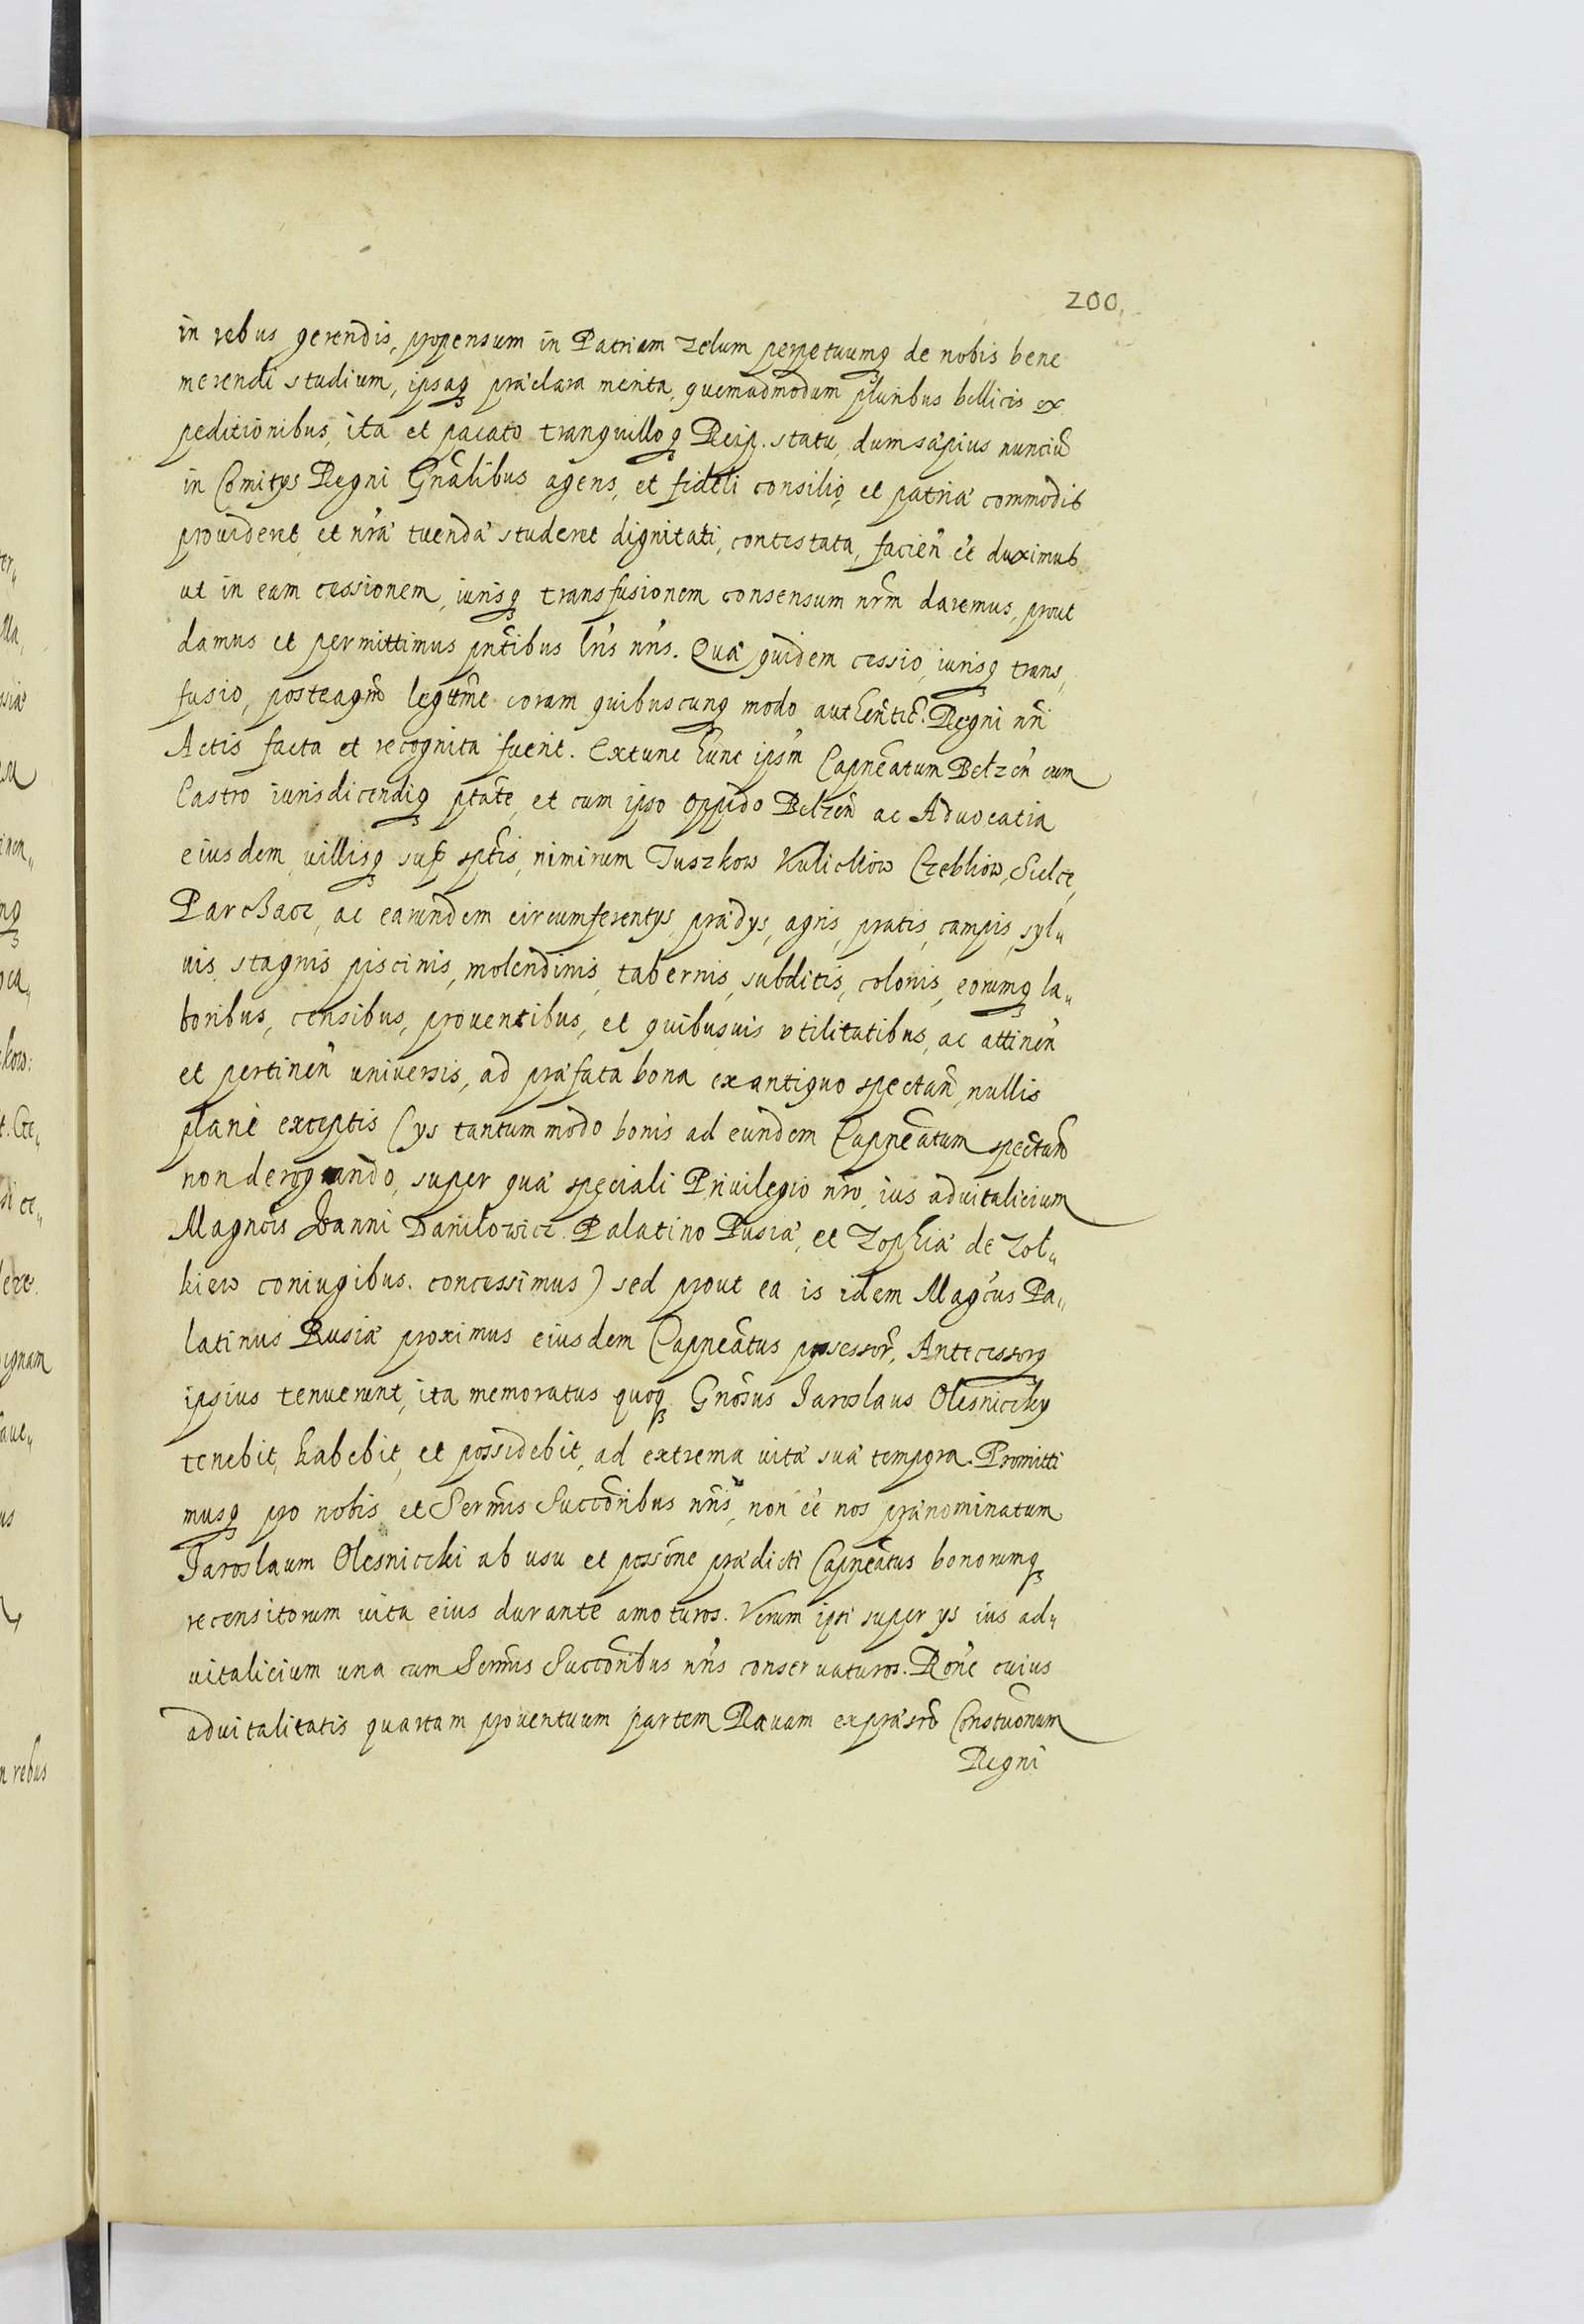 200.
in rebus gerendis, propensum in Patriam zelum perpetuumq de nobis bene
merendi studium, ipsaq præclara merita, quemadmodum pluribus bellicis ex
peditionibus, ita et pacato tranquilloq Reip. statu, dum sæpius nunciũ
in Comitys Regni Gnãlibus agens, et fideli consilio, et patriæ commodis
prouideret, et nr̃æ tuendæ studeret dignitati, contestata, facien̄ eẽ duximus
ut in eam cessionem, iurisq transfusionem consensum nrm̃ daremus, prout
damus et permittimus pntĩbus lrı̃s nrı̃s. Quæ quidem cessio, iurisq trans,
fusio, posteaqm̃ legitime coram quibuscunq modo authentic̃. Regni nrı̃
Actis facta et recognita fuerit. Extunc hunc ipsm̃ Capneãtum Belzen̄ cum
Castro iurisdicendiq ptãte, et cum ipso oppido Belzen̄ ac Aduocatia
eiusdem, villisq sup̃ sptĩs, nimirum Tuszkow Kuliczkow Czebliow, Sielce,
Parchacz, ac earundem circumferentys, prædys, agris, pratis, campis, syl„
uis, stagnis piscinis, molendinis, tabernis, subditis, colonis, eorumq la„
boribus, censibus, prouentibus, et quibusuis vtilitatibus, ac attinen̄
et pertinen̄ universis, ad præfata bona ex antiquo spectan̄, nullis
planè exceptis (ys tantummodo bonis ad eundem Capneãtum spectan̄
non derogando, super quæ speciali Priuilegio nrõ, ius aduitalicium
Magncı̃s Joanni Danilowicz Palatino Rusiæ, et Zophiæ de Zol„
kiew coniugibus. concessimus) sed prout ea is idem Magcũs Pa„
latinus Rusiæ proximus eiusdem Capneãtus possessor, Antecessorq
ipsius tenuerunt, ita memoratus quoq Gnõsus Jaroslaus Olesniczky
tenebit, habebit, et possidebit, ad extrema vitæ suæ tempora. Promitti
musq pro nobis et Sermı̃s Succõribus nrı̃s, non eẽ nos prænominatum
Jaroslaum Olesniczki ab usu et possõne prædicti Capneãtus bonorumq
recensitorum vita eius durante amoturos. Verum ipsi super ys ius ad„
uitalicium una cum Sermı̃s Succõribus nrı̃s conseruaturos. Rõne cuius
aduitalitatis quartam prouentuum partem Rauam ex præsrõ Constuõnum
Regni